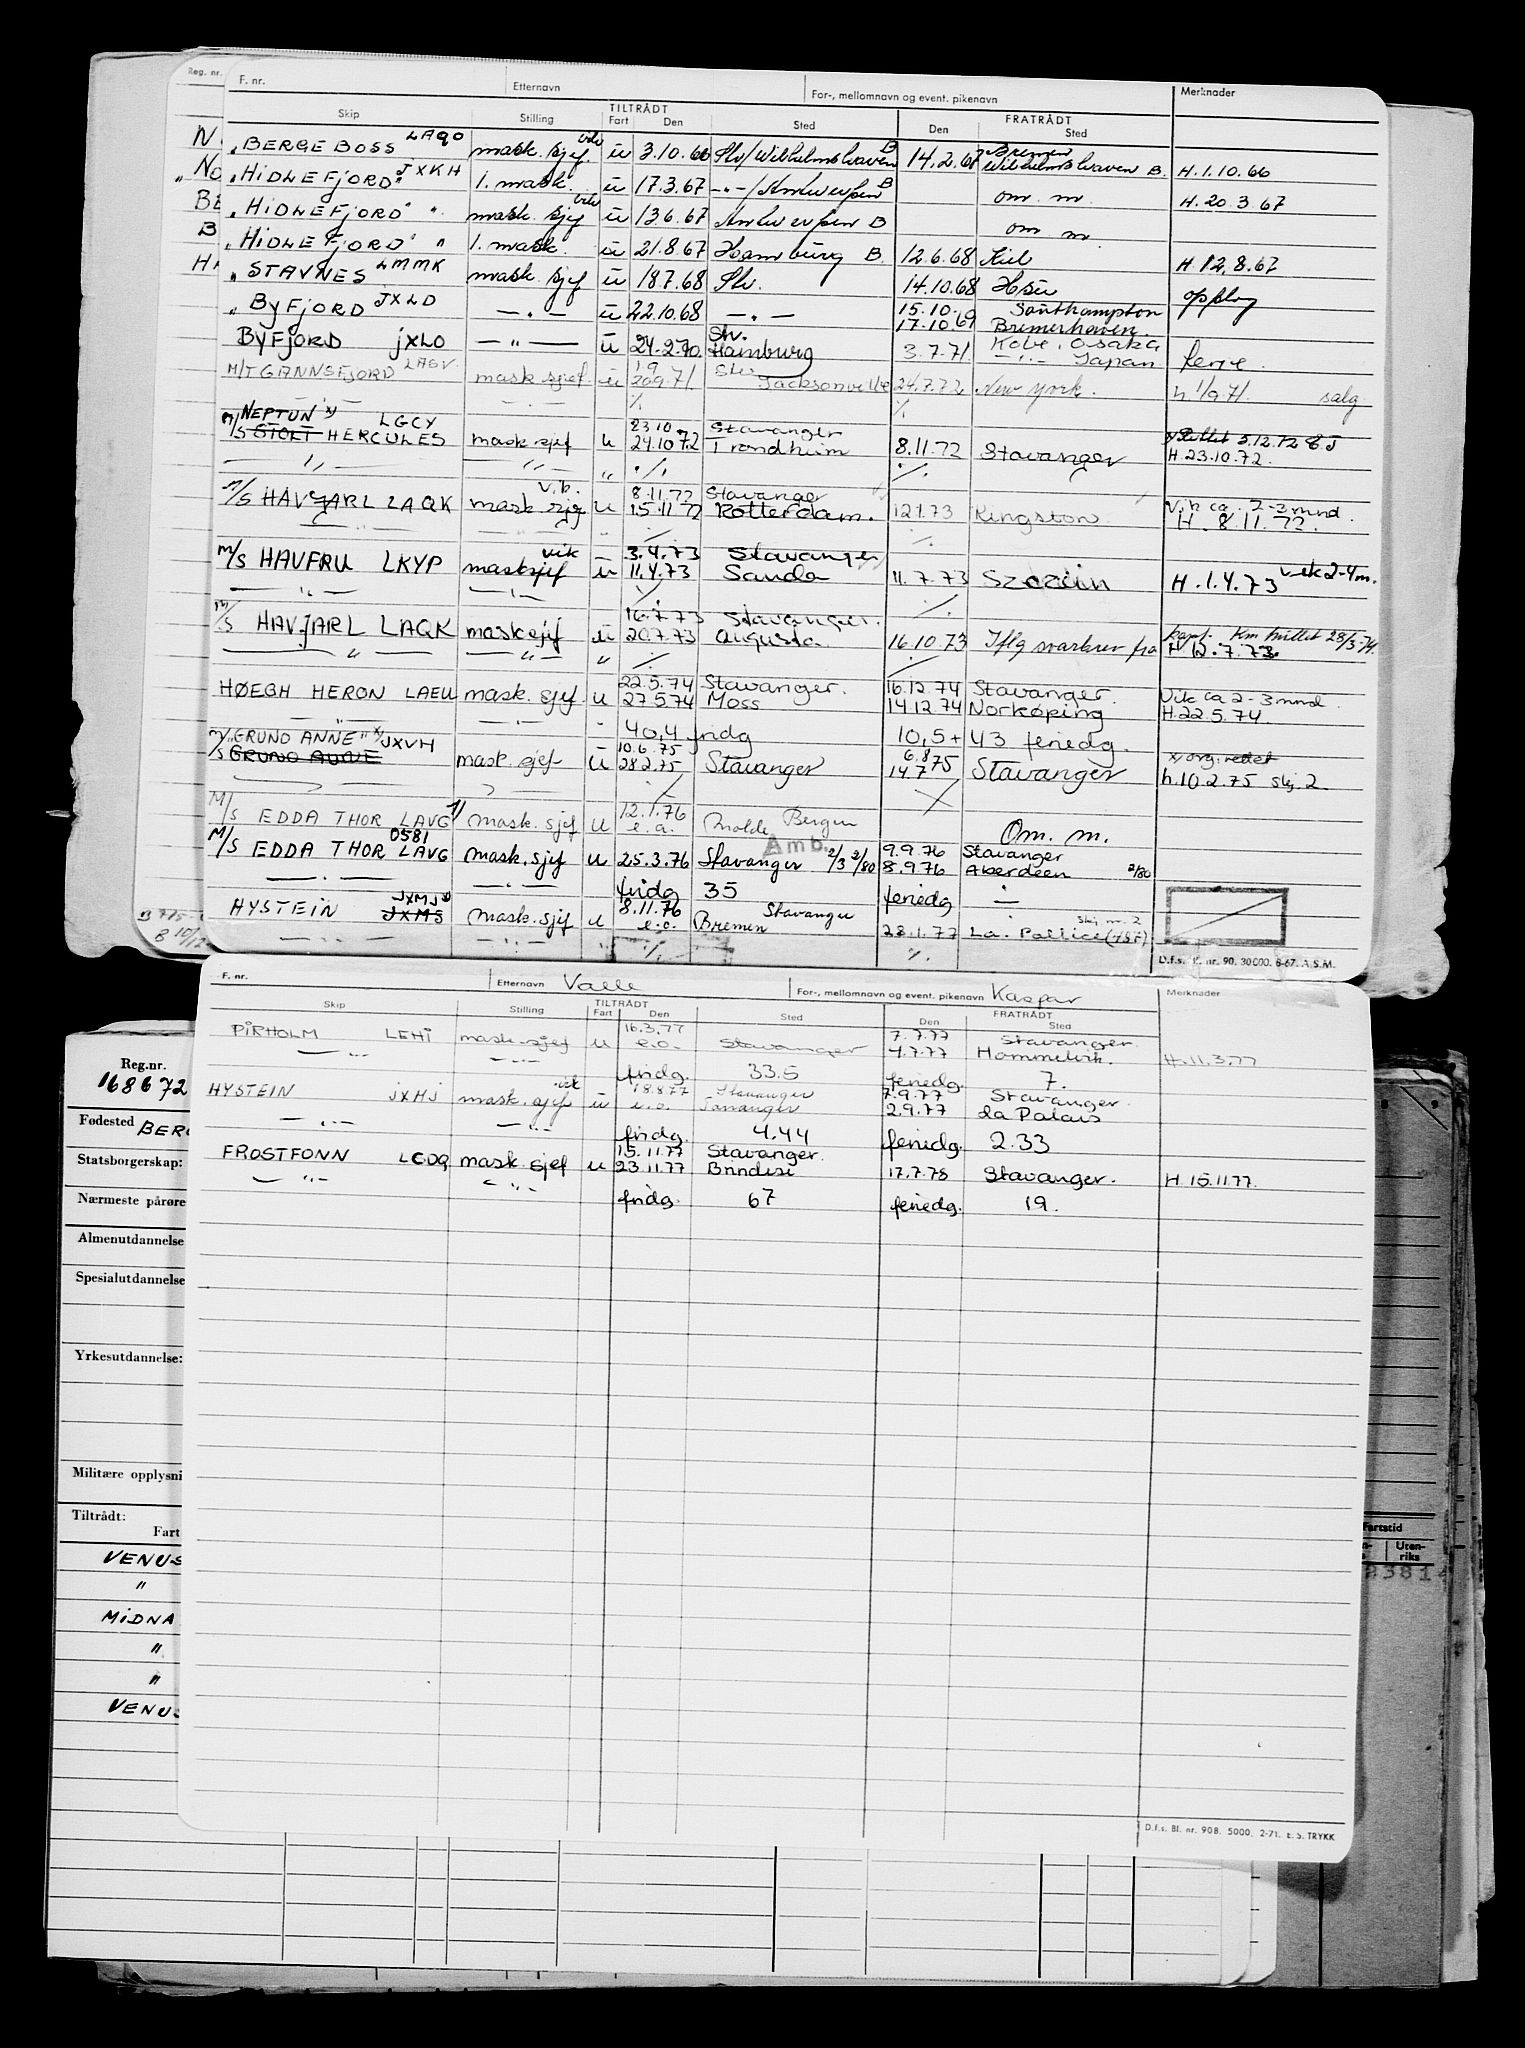 Reg. nr.
F. nr. Etternavn For-, mellomnavn og event. pikenavn Merknader
TILTRÅDT FRATRÅDT
Skip Stilling Fart Den Sted Den Sted
"BERGE BOSS LAQO mask. sjef. vik ū 3.10.66 Slv/Wilhelmshaven B 14.2.67 Bremen Wilhelmshaven B. H.1.10.66
"HIDLEFJORD" JXKH 1. mask. ū 17.3.67 -"-/Antwerpen B om. m. H. 20.3.67
"HIDLEFJORD" " mask. sjef vik ū 13.6.67 Antwerpen B om m.
"HIDLEFJORD" " 1. mask. ū 21.8.67 Hamburg B. 12.6.68 Kiel H.12.8.67
"STAVNES LMMK mask. sjef ū 18.7.68 Slv. 14.10.68
"BYFJORD JXLO -"- ū 22.10.68 -"- 15.10. 17.10.69 Southampton Bremerhaven. opplag
BYFJORD JXLO -"- ū 24.2.70. Stv. Hamburg 3.7.71 Kobe, Osaka -"- Japan ferie.
M/T GANNSFJORD LAGV mask sjef ū 1.9 20.9.71. Stv Jacksonville 24.7.72 New York. h. 1/9 71. salg
-"- ./. ./.
M/S NEPTUN x) STOLT HERCULES LGCY mask sjef u 23.10 24.10.72 Stavanger Trondheim 8.11.72 Stavanger x) Rettet 5.12.72 B.J H.23.10.72.
-"- -"- " ./. ./.
M/S HAVJARL LAQK mask sjef v.k. u 8.11.72 15.11.72 Stavanger Rotterdam. 12.1.73 Kingston Vik ca. 2-3 mnd. H. 8.11.72.
-"- -"- " ./. ./.
M/S HAVFRU LKYP mask sjef vik ū 3.4.73 11.4.73 Stavanger Sauda 11.7.73 Szczcin H.1.4.73 vik 2-4m.
-"- -"- ./. ./.
M/S HAVJARL LAQK mask sjef ū 16.7.73 20.7.73 Stavanger. Augusta. 16.10.73 Iflg svarbrev fra kapt. Km hvillet 28/3-74. H 12.7.73.
-"- -"- " ./. ./.
HØEGH HERON LAEU mask. sjef u 22.5.74 27.5.74 Stavanger. Moss 16.12.74 14.12.74 Stavanger. Norköping Vik ca 2-3 mnd H.22.5.74
-"- -"- - 40,4 fridg 10,5+ 43 feriedg.
M/S "GRUNO ANNE" x) JXVH mask. sjef ū 10.6.75 28.2.75 Stavanger 6.8.75 14.7 Stavanger x) org. rettet h.10.2.75 Skj. 2.
M/S EDDA THOR LAVG 1) mask. sjef u 12.1.76 e.o. Molde Bergen Om. m.
M/S EDDA THOR 0581 LAVG mask. sjef u 25.3.76 Stavanger Amb. 2/3 2/80 9.9.76 8.9.76 Stavanger Aberdeen 2/80
-"- -"- fridg 35 feriedg -
HYSTEIN JXMJ x) JXMS mask. sjef u 8.11.76 e.o. Stavanger Bremen 28.1.77 La. Pallice (187) Skj. nr. 2
-"- -"- " ./. ./.
D.f.s. K. nr. 90. 30000. 6-67. A.S.M.
F. nr. Etternavn Valle For-, mellomnavn og event. pikenavn Kaspar Merknader
TILTRÅDT FRATRÅDT
Skip Stilling Fart Den Sted Den Sted
PIRHOLM LEHI mask. sjef u 16.3.77 e.o. Stavanger 7.7.77 4.7.77 Stavanger. Hommelvik. H.11.3.77
-"- -"- fridg. 33.5 feriedg. 7.
HYSTEIN JXMJ mask. sjef vik ū 18.8.77 e.o. Stavanger Tananger 7.9.77 2.9.77 Stavanger. La Palais
-"- -"- fridg. 4.44 feriedg. 2.33
FROSTFONN LCDQ mask sjef u 15.11.77 23.11.77 Stavanger. Brindisi 17.7.78 Stavanger. H 15.11.77.
-"- -"- fridg. 67 feriedg. 19.
D.f.s. Bl. nr. 90B. 5000. 2-71. E.S. TRYKK
Reg.nr.
168672
Fødested BERG
Statsborgerskap:
Nærmeste pårøre
Almenutdannelse
Spesialutdannelse
Yrkesutdannelse:
Militære opplysni
Tiltrådt:
Fart
VENUS
"
MIDNA
"
"
VENUS
Fartstid
Uten-
riks